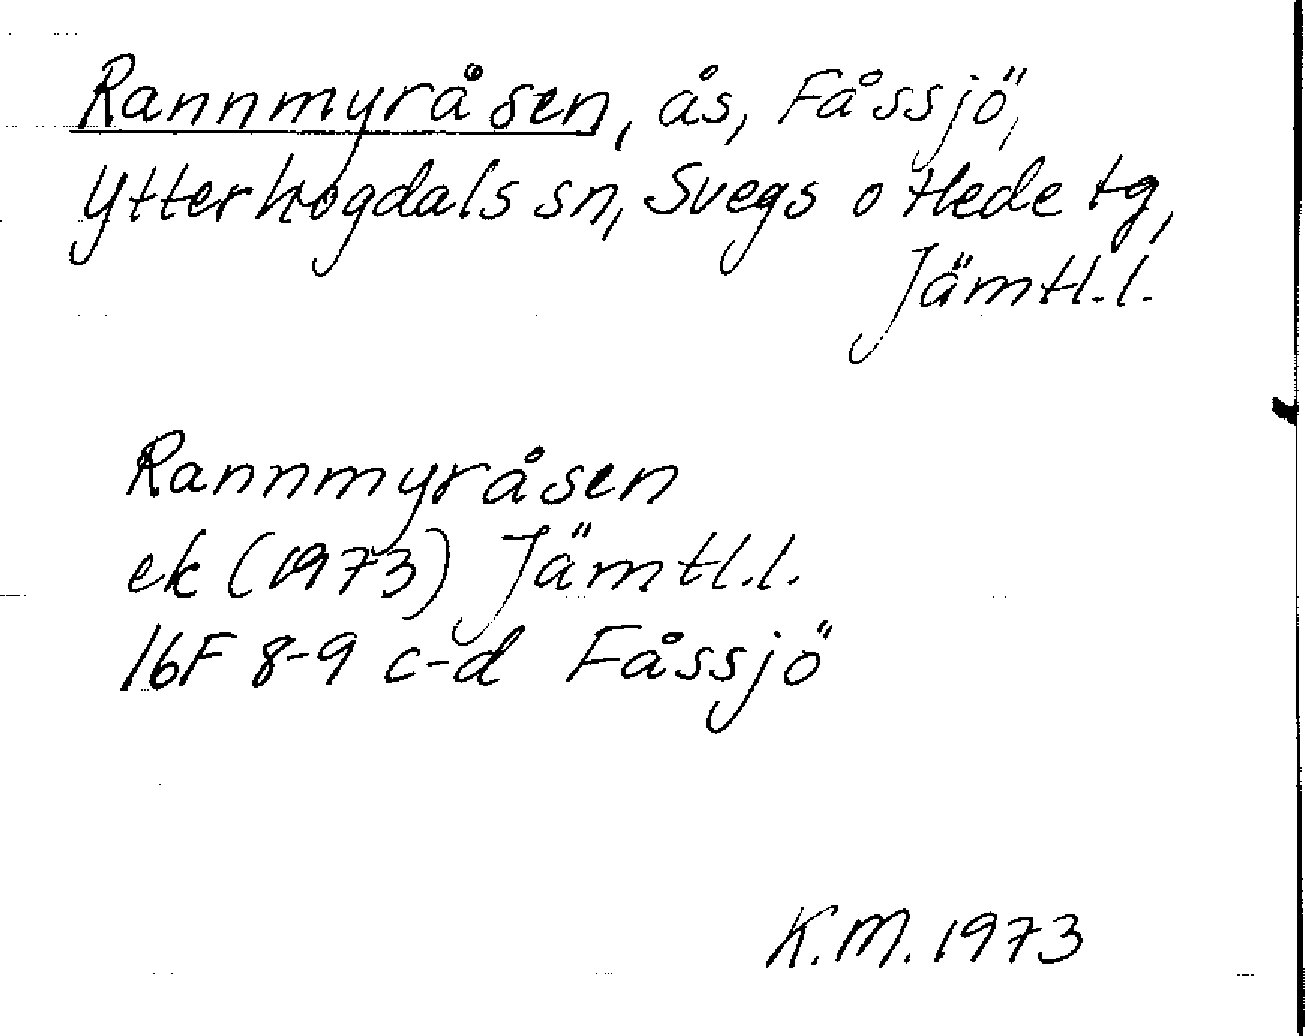 Rannmyråsen, ås, Fåssjö,
Ytterhogdals sn, Svegs o Hede tg,
Jämtl.l.
Rannmyråsen
ek (1973) Jämtl.l.
16F 8-9 c-d Fåssjö
K.M. 1973